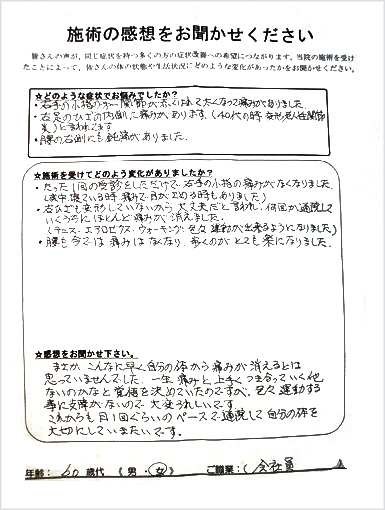 施術の感想をお聞かせください
皆さんの声が、同じ症状を持つ多くの方の症状改善への希望につながります。当院の施術を受け
たことによって、皆さんの体の状態や生活状況にどのような変化があったかをお聞かせください。
☆どのような症状でお悩みでしたか？
・右手の小指の第一関節が赤くはれて太くなって痛みがありました。
・右足のひざの内側に痛みがあります。(40代の時 変形老人性関節
炎)と言われてます
・腰の右側にも鈍痛がありました。
☆施術を受けてどのような変化がありましたか？
・たった1回の受診をしただけで、右手の小指の痛みがなくなりました。
(夜中、寝ている時、痛みで目がさめる時もありました)
・右ひざも変形していないから大丈夫だと言われ、何回か通院して
いくうちにほとんど痛みが消えました。
(テニス・エアロビクス・ウォーキング、色々運動が出来るようになりました)
・腰も今では痛みはなくなり、歩くのがとても楽になりました。
☆感想をお聞かせ下さい。
まさか、こんなに早く自分の体から痛みが消えるとは
思っていませんでした。一生 痛みと上手くつき合っていく他
ないのかなと覚悟を決めていたのですが、色々運動する
事に支障がないので、大変うれしいです。
これからも月1回ぐらいのペースで通院して自分の体を
大切にしていきたいです。
年齢：60歳代 《 男 ・ 女 》 ご職業：( 会社員 )